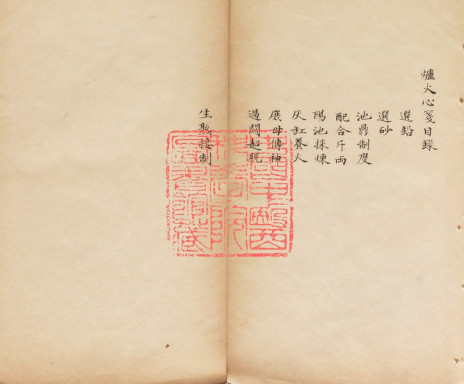 爐火心箋目錄
選鉛
選砂
池鼎制度
配合斤兩
陽池採煉
灰缸養火
展母傳神
過關起脫
生熟接制